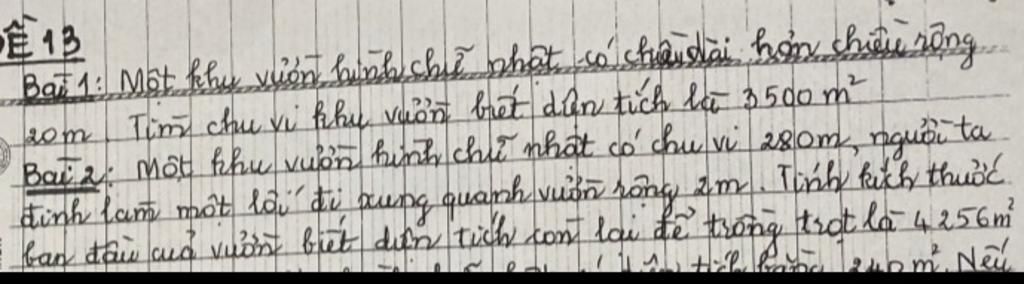 Ề 13
Bài 1: Một khu vườn hình chữ nhật có chiều dài hơn chiều rộng
20m. Tìm chu vi khu vườn biết diện tích là 3500 m²
Bài 2: Một khu vườn hình chữ nhật có chu vi 280m, người ta
định làm một lối đi xung quanh vườn rộng 2m. Tính kích thước
ban đầu của vườn biết diện tích còn lại để trồng trọt là 4256m²
tích bằng 240m². Nếu